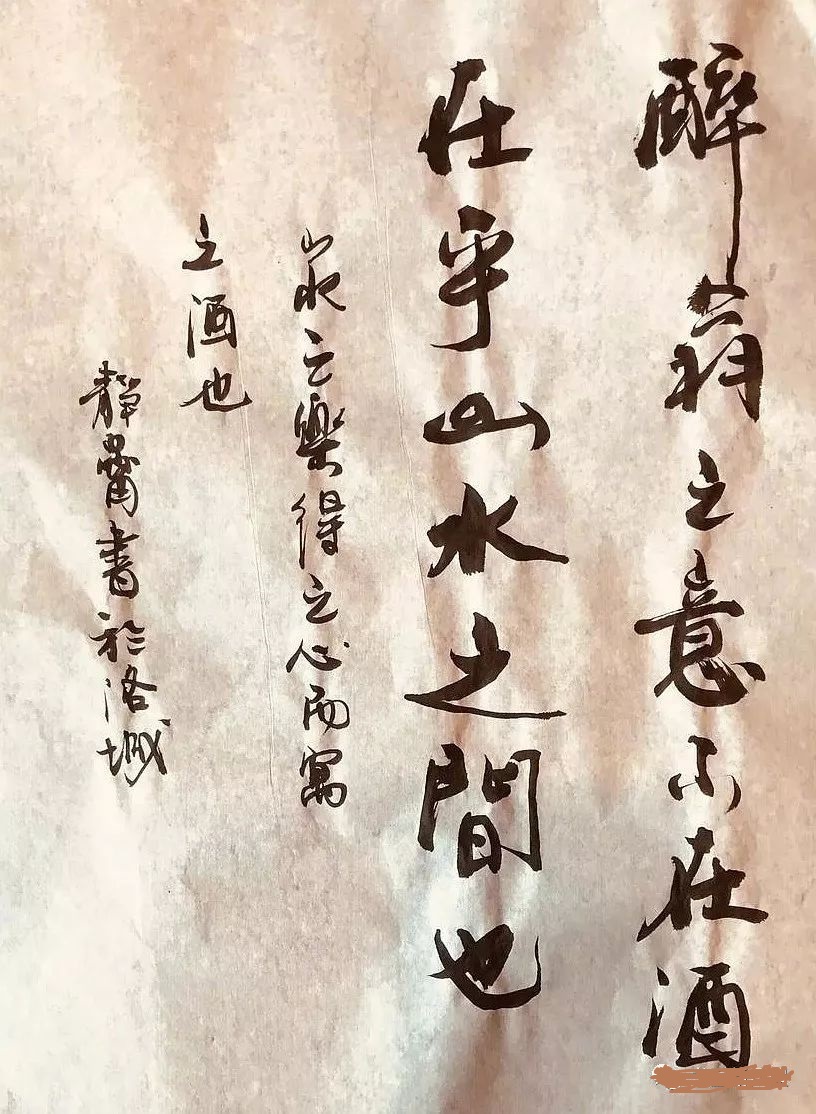 醉翁之意不在酒
在乎山水之間也
山水之樂得之心而寓
之酒也
靜齋書於洛城